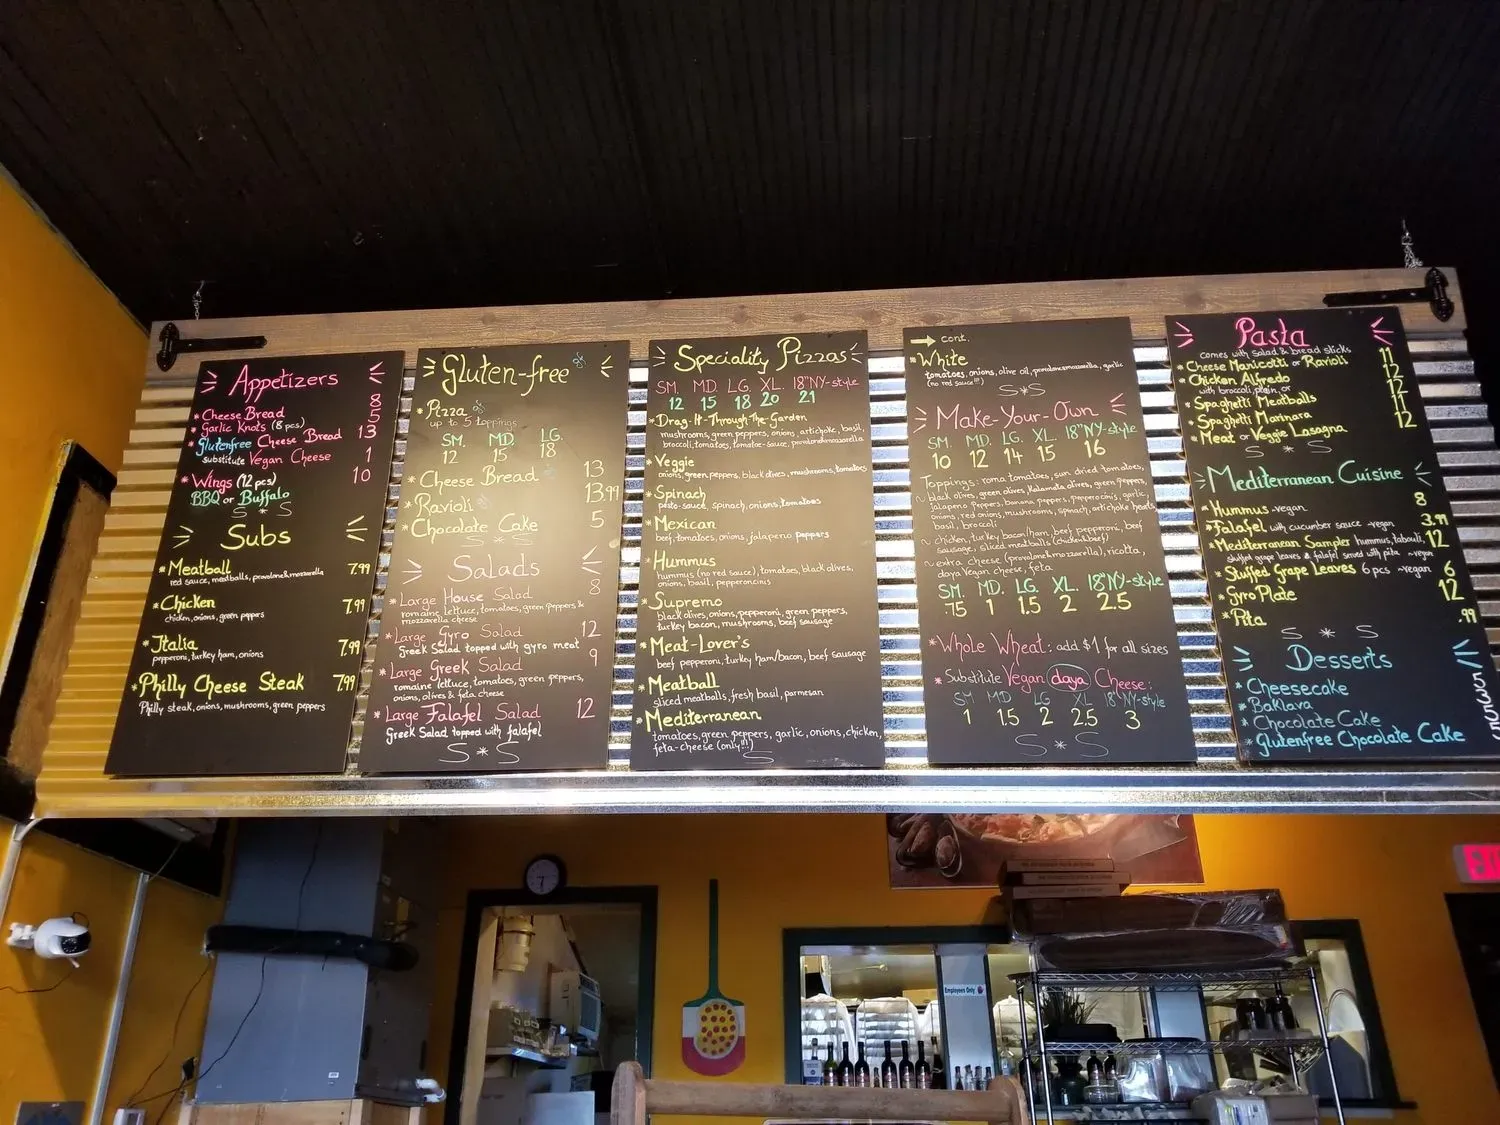 Appetizers
* Cheese Bread 8
* Garlic Knots (8 pcs) 5
* Glutenfree Cheese Bread 13
substitute Vegan Cheese 1
* Wings (12 pcs) 10
BBQ or Buffalo
S * S
Subs
* Meatball 7.99
red sauce, meatballs, provalone&mozzarella
* Chicken 7.99
chicken, onions, green peppers
* Italia 7.99
pepperoni, turkey ham, onions
* Philly Cheese Steak 7.99
Philly steak, onions, mushrooms, green peppers
Gluten-free
* Pizza
up to 5 toppings
SM. MD. LG.
12 15 18
* Cheese Bread 13
* Ravioli 13.99
* Chocolate Cake 5
S * S
Salads
* Large House Salad 8
romaine lettuce, tomatoes, green peppers &
mozzarella cheese
* Large Gyro Salad 12
Greek Salad topped with gyro meat
* Large Greek Salad 9
romaine lettuce, tomatoes, green peppers,
onions, olives & feta cheese
* Large Falafel Salad 12
Greek Salad topped with falafel
S * S
Speciality Pizzas
SM. MD. LG. XL. 18"NY-style
12 15 18 20 21
* Drag-It-Through-The-Garden
mushrooms, green peppers, onions, artichoke, basil,
broccoli, tomatoes, tomatoe-sauce, provalone&mozzarella
* Veggie
onions, green peppers, black olives, mushrooms, tomatoes
* Spinach
pesto-sauce, spinach, onions, tomatoes
* Mexican
beef, tomatoes, onions, jalapeno peppers
* Hummus
hummus (no red sauce), tomatoes, black olives,
onions, basil, pepperoncius
* Supremo
black olives, onions, pepperoni, green peppers,
turkey bacon, mushrooms, beef sausage
* Meat-Lover's
beef pepperoni, turkey ham/bacon, beef sausage
* Meatball
sliced meatballs, fresh basil, parmesan
* Mediterranean
tomatoes, green peppers, garlic, onions, chicken,
feta-cheese (only!!!)
S
→ cont.
* White
tomatoes, onions, olive oil, provalone&mozzarella, garlic
(no red sauce!!!)
S * S
Make-Your-Own
SM. MD. LG. XL. 18"NY-style
10 12 14 15 16
Toppings: roma tomatoes, sun dried tomatoes,
~ black olives, green olives, Kalamata olives, green peppers,
jalapeno peppers, banana peppers, peperocinis, garlic,
onions, red onions, mushrooms, spinach, artichoke hearts,
basil, broccoli
~ chicken, turkey bacon/ham, beef pepperoni, beef
sausage, sliced meatballs (chicken&beef)
~ extra cheese (provalone&mozzarella), ricotta,
daya Vegan cheese, feta
SM. MD. LG. XL. 18"NY-style
.75 1 1.5 2 2.5
* Whole Wheat: add $1 for all sizes
* Substitute Vegan daya Cheese:
SM MD LG XL 18"NY-style
1 1.5 2 2.5 3
S * S
Pasta
comes with salad & bread sticks
* Cheese Manicotti or Ravioli 11
* Chicken Alfredo 12
with broccoli, plain, or
* Spaghetti Meatballs 12
* Spaghetti Marinara 11
* Meat or Veggie Lasagna 12
S * S
Mediterranean Cuisine
* Hummus -vegan 8
* Falafel with cucumber sauce -vegan 3.99
* Mediterranean Sampler hummus, tabouli, 12
stuffed grape leaves & falafel served with pita ~vegan
* Stuffed Grape Leaves 6 pcs ~vegan 6
* Gyro Plate 12
* Pita .99
S * S
Desserts
* Cheesecake
* Baklava
* Chocolate Cake
* Glutenfree Chocolate Cake
Employees Only